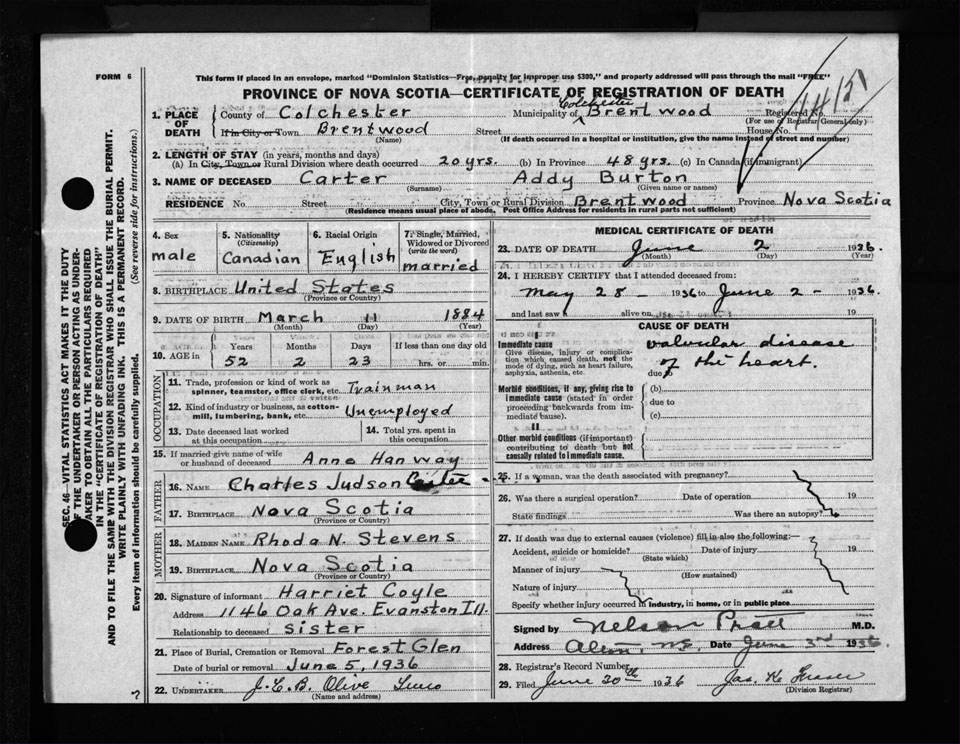 FORM 6
This form if placed in an envelope, marked "Dominion Statistics—Free, penalty for improper use $300," and properly addressed will pass through the mail "FREE"
PROVINCE OF NOVA SCOTIA—CERTIFICATE OF REGISTRATION OF DEATH
1. PLACE OF DEATH
County of Colchester
Municipality of Colchester Brentwood
Registered No.
(For use of Registrar General only)
If in City or Town Brentwood Street House No.
(Name) (If death occurred in a hospital or institution, give the name instead of street and number)
2. LENGTH OF STAY (in years, months and days)
(a) In City, Town or Rural Division where death occurred 20 yrs. (b) In Province 48 yrs. (c) In Canada (if immigrant)
3. NAME OF DECEASED Carter Addy Burton
(Surname) (Given name or names)
RESIDENCE No Street City, Town or Rural Division Brentwood Province Nova Scotia
(Residence means usual place of abode. Post Office Address for residents in rural parts not sufficient)
SEC. 46—VITAL STATISTICS ACT MAKES IT THE DUTY
OF THE UNDERTAKER OR PERSON ACTING AS UNDER-
TAKER TO OBTAIN ALL THE PARTICULARS REQUIRED
IN THE "CERTIFICATE OF REGISTRATION OF DEATH"
AND TO FILE THE SAME WITH THE DIVISION REGISTRAR WHO SHALL ISSUE THE BURIAL PERMIT.
WRITE PLAINLY WITH UNFADING INK. THIS IS A PERMANENT RECORD.
Every item of information should be carefully supplied. (See reverse side for instructions.)
4. Sex
male
5. Nationality
(Citizenship)
Canadian
6. Racial Origin
English
7. Single, Married,
Widowed or Divorced
(write the word)
married
8. BIRTHPLACE United States
(Province or Country)
9. DATE OF BIRTH March 11 1884
(Month) (Day) (Year)
10. AGE in
Years Months Days If less than one day old
52 2 23 hrs. or min.
OCCUPATION
11. Trade, profession or kind of work as
spinner, teamster, office clerk, etc. Trainman
12. Kind of industry or business, as cotton-
mill, lumbering, bank, etc. Unemployed
13. Date deceased last worked
at this occupation
14. Total yrs. spent in
this occupation
15. If married give name of wife
or husband of deceased Anne Hanway
FATHER
16. NAME Charles Judson Carter
17. BIRTHPLACE Nova Scotia
(Province or Country)
MOTHER
18. MAIDEN NAME Rhoda N. Stevens
19. BIRTHPLACE Nova Scotia
(Province or Country)
20. Signature of informant Harriet Coyle
Address 1146 Oak Ave. Evanston Ill.
Relationship to deceased Sister
21. Place of Burial, Cremation or Removal Forest Glen
Date of burial or removal June 5, 1936
22. UNDERTAKER J. C. B. Olive
(Name and address)
MEDICAL CERTIFICATE OF DEATH
23. DATE OF DEATH June 2 1936.
(Month) (Day) (Year)
24. I HEREBY CERTIFY that I attended deceased from:
May 28 - 1936 to June 2 - 1936.
and last saw alive on 19
CAUSE OF DEATH
I
Immediate cause
Give disease, injury or complica-
tion which caused death, not the
mode of dying, such as heart failure,
asphyxia, asthenia, etc.
valvular disease
of the heart.
due to
Morbid conditions, if any, giving rise to
immediate cause (stated in order
proceeding backwards from im-
mediate cause).
(b)
due to
(c)
II
Other morbid conditions (if important)
contributing to death but not
causally related to immediate cause.
25. If a woman, was the death associated with pregnancy?
26. Was there a surgical operation? Date of operation 19
State findings Was there an autopsy?
27. If death was due to external causes (violence) fill in also the following:—
Accident, suicide or homicide? Date of injury 19
(State which)
Manner of injury
(How sustained)
Nature of injury
Specify whether injury occurred in industry, in home, or in public place
Signed by Nelson Pratt M.D.
Address Date June 3rd 1936
28. Registrar's Record Number
29. Filed June 20th 1936 Jas. K. Fraser
(Division Registrar)